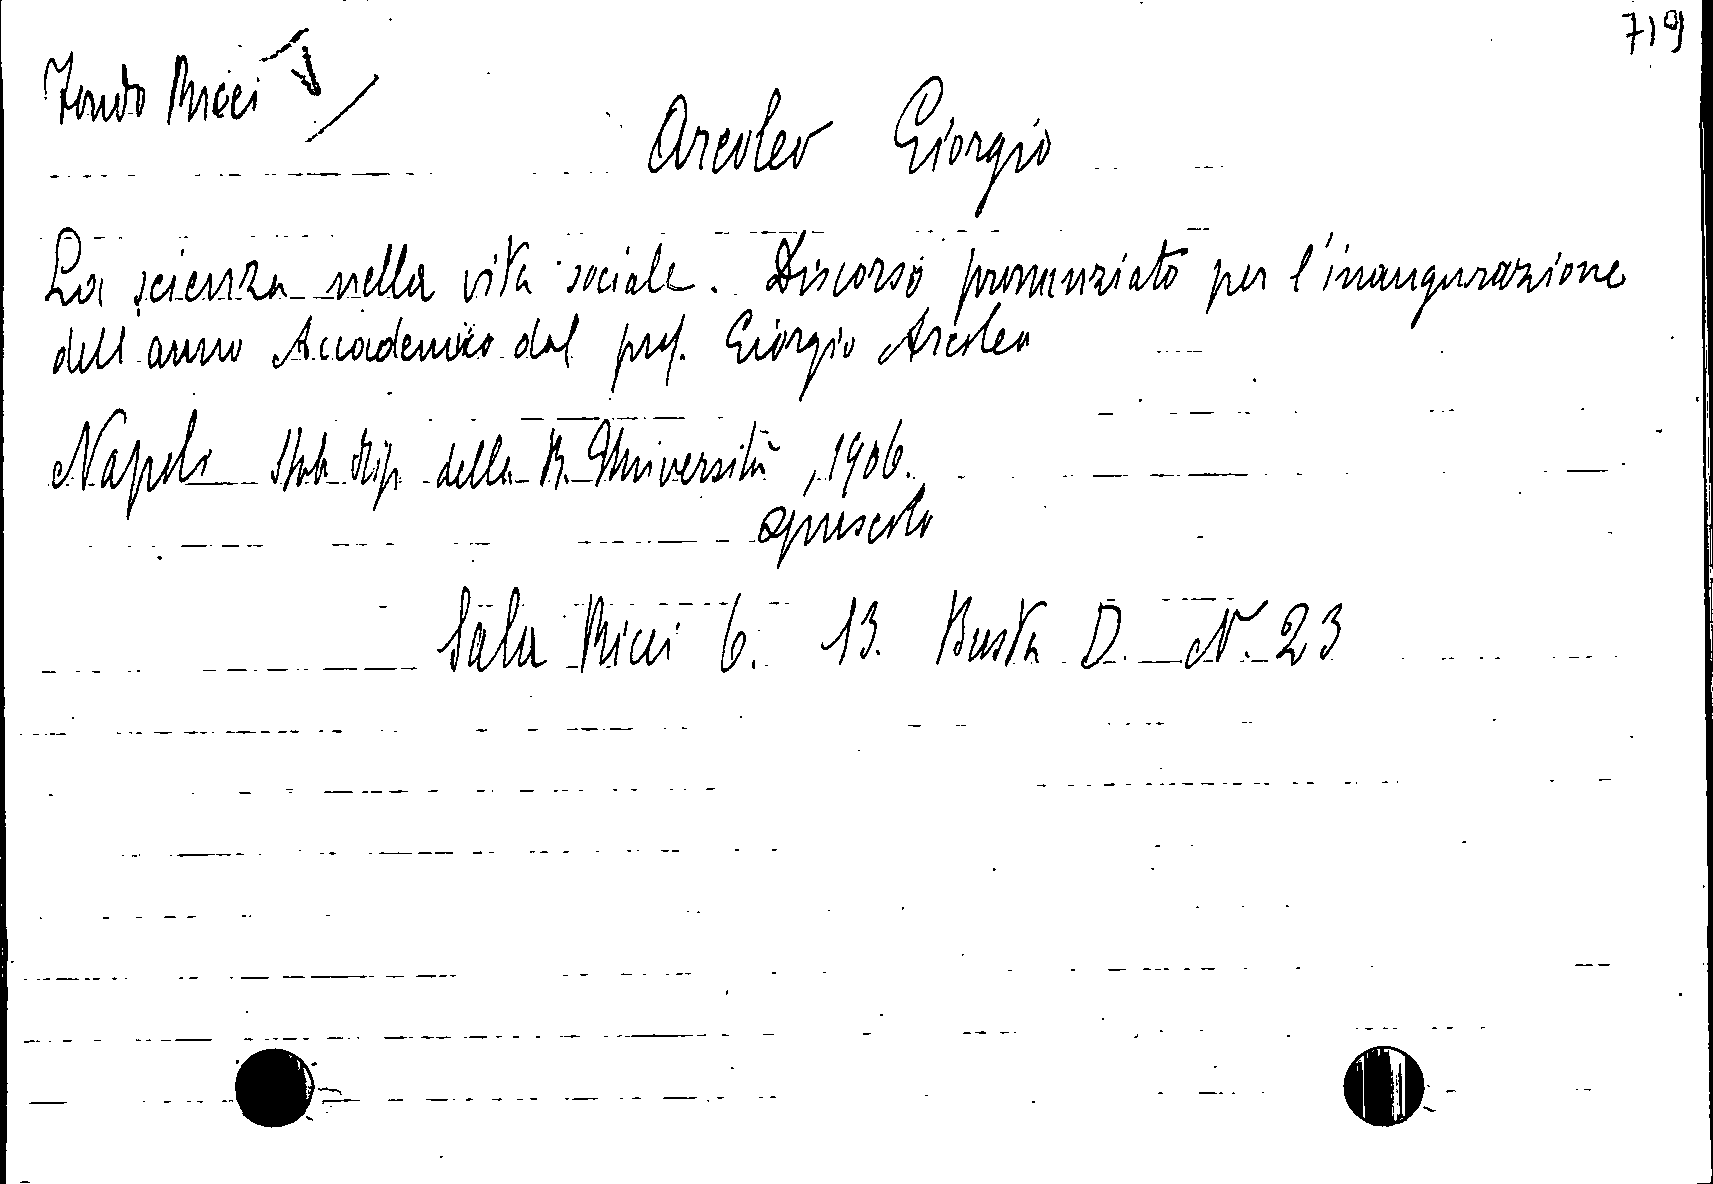 719
Fondo Ricci
Arcoleo Giorgio
La scienza nella vita sociale. Discorso pronunziato per l'inaugurazione
dell'anno Accademico dal prof. Giorgio Arcoleo
Napoli Stab tip della R. Università, 1906.
opuscolo
Sala Ricci 6. 13. Busta D. N. 23